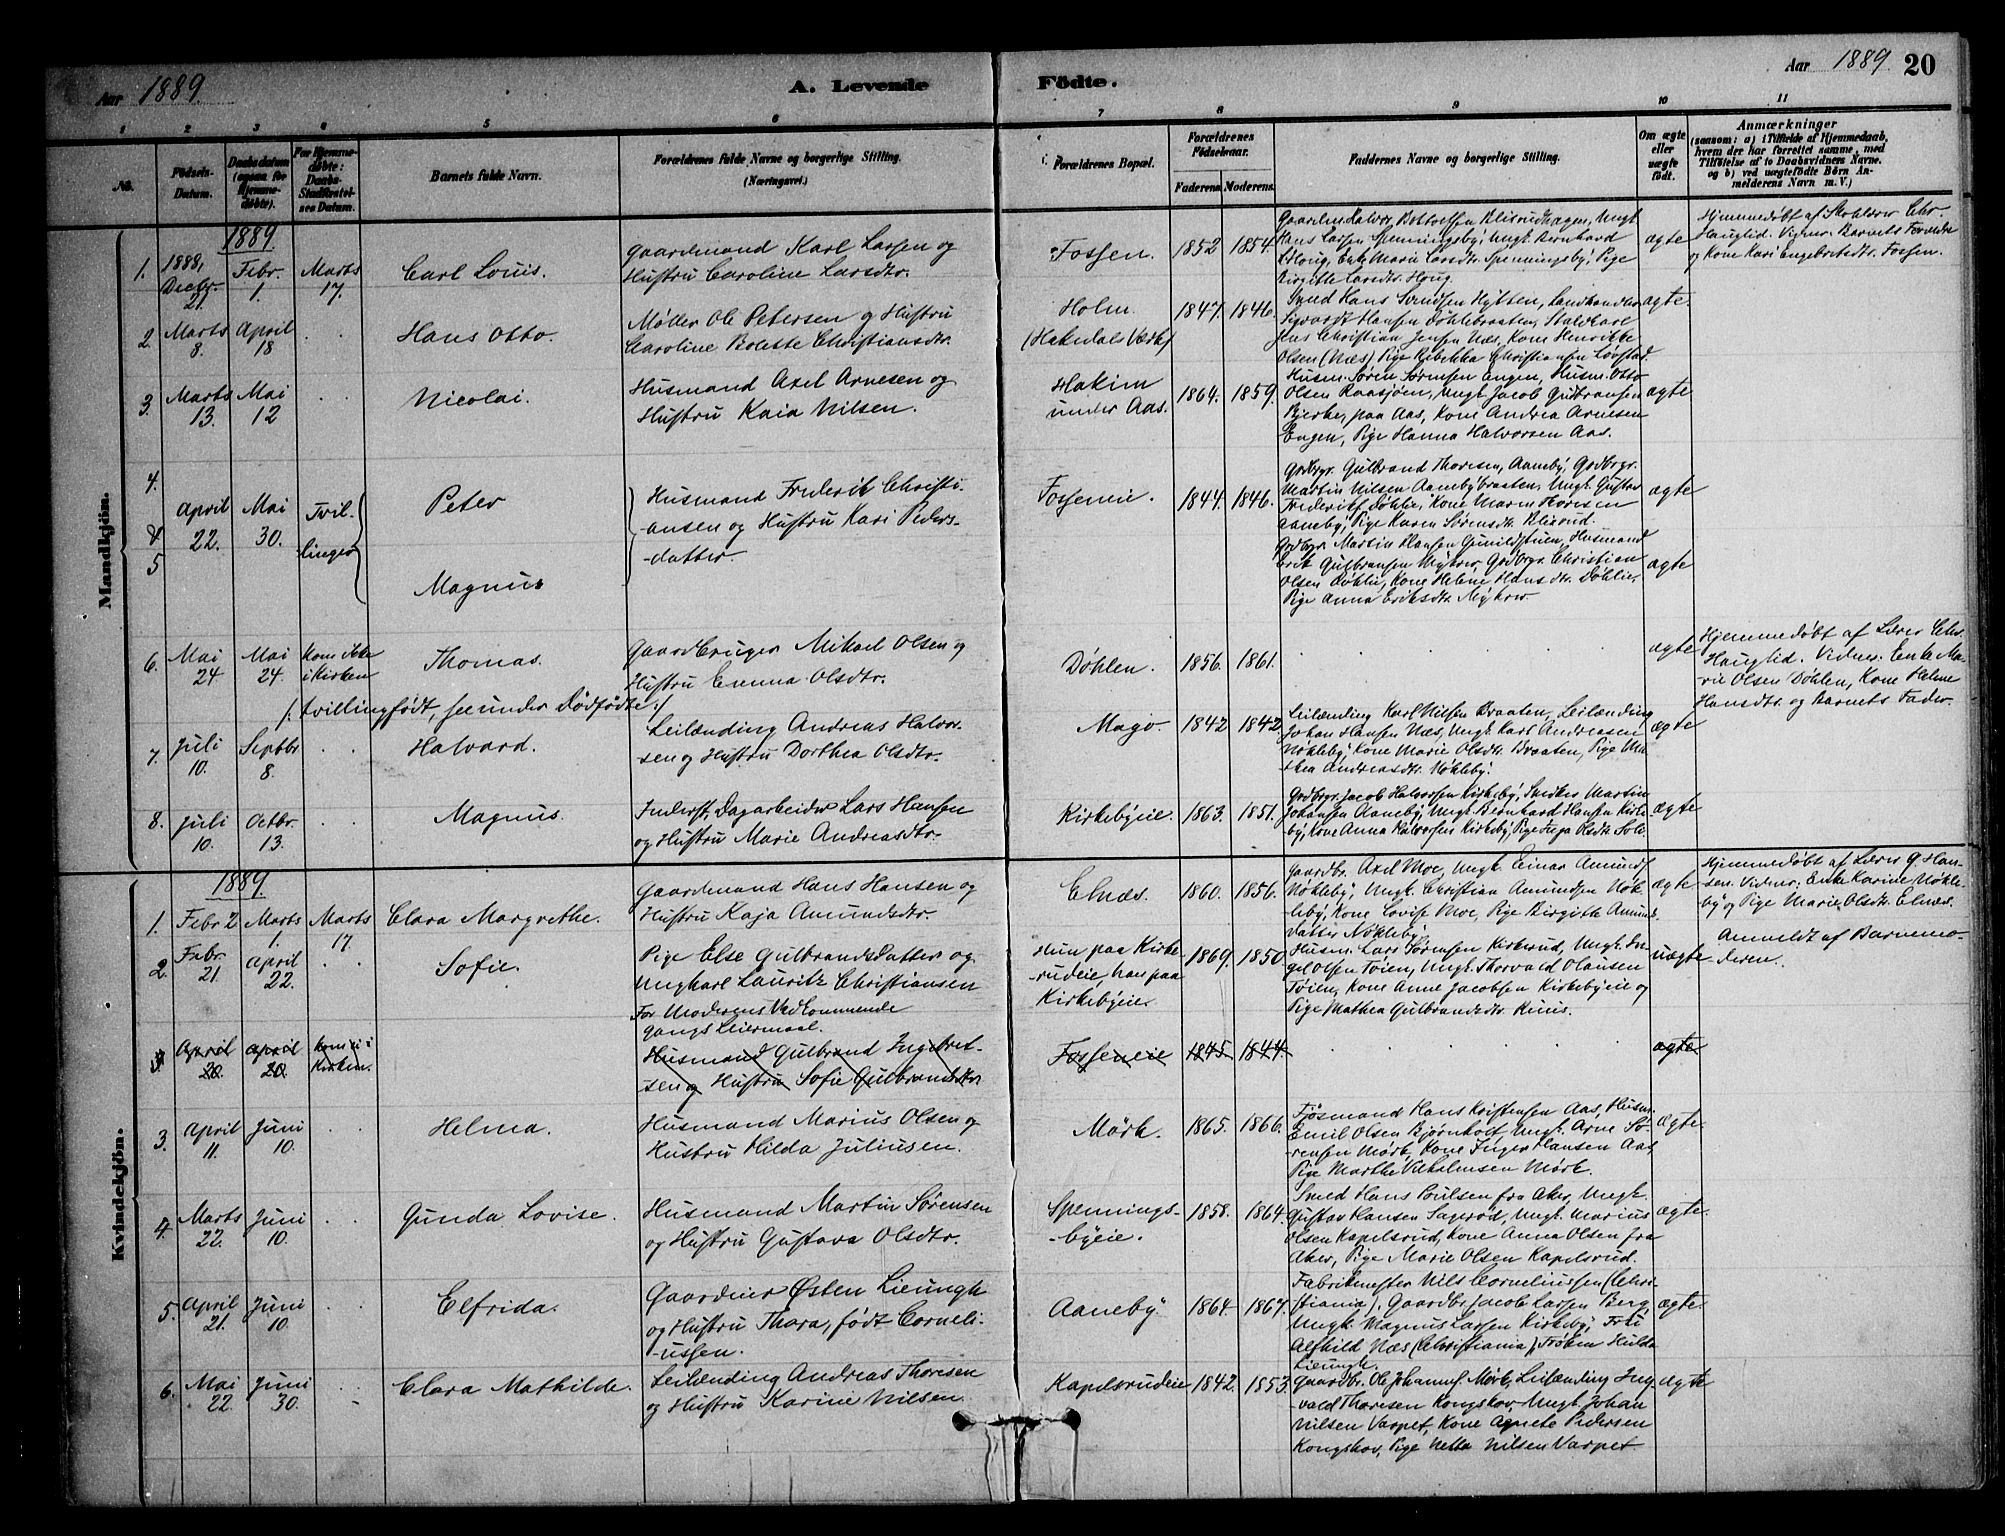 Aar 1889
A. Levende Födte.
Aar 1889 20
1 2 3 4 5 6 7 8 9 10 11
No. Födsels-Datum. Daabsdatum (ogsaa for Hjemme-döbte). For Hjemme-döbte: Daabs-Stadfæstel-ses Datum. Barnets fulde Navn. Forældrenes fulde Navne og borgerlige Stilling. (Næringsvei.) Forældrenes Bopæl. Forældrenes Födselsaar. Faderens. Moderens. Faddernes Navne og borgerlige Stilling. Om ægte eller uægte födt. Anmærkninger
(saasom: a) i Tilfælde af Hjemmedaab,
hvem der har forrettet samme, med
Tilföielse af to Daabsvidners Navne.
og b) ved uægtefödte Börn An-
melderens Navn m. V.)
Mandkjön.
1889.
1. 1888, Decbr. 21. Febr. 1. Marts 17. Carl Louis.
Gaardmand Karl Larsen og
Hustru Caroline Larsdtr.
Fossen. 1852 1854.
Gaardm. Halvor Bottolfsen Blisrudhagen, Ungk.
Hans Larsen Spenningsby, Ungk. Bernhard
Houg, Enke Marie Larsdtr. Spenningsby, Pige
Birgitte Larsdtr. Houg.
ægte
Hjemmedøbt af Skolelærer Chr.
Hauglid. Vidner. Barnets Forældre
og Kone Kari Engebretsdtr. Fossen.
2. Marts 8. April 18 Hans Otto.
Møller Ole Petersen og Hustru
Caroline Bolette Christiansdtr.
Holm.
(Hakedals Værk)
1847. 1846.
Smed Hans Svendsen Hytten, Landhandler
Sigvardt Hansen Døhlebraaten, Staldkarl
Jens Christian Jensen Næs, Kone Henrikke
Olsen (Næs) Pige Rebekka Christiansen Løvstad.
ægte.
3. Marts 13. Mai 12 Nicolai.
Husmand Axel Arnesen og
Hustru Kaia Nilsen.
Hakim
under Aas.
1864. 1859.
Husm. Søren Sørensen Engen, Husm. Otto
Olsen Raasjøen, Ungk. Jacob Gulbransen
Bjerke, paa Aas, Kone Andrea Arnesen
Engen, Pige Hanna Halvorsen Aas.
ægte
4. & 5 April 22. Mai 30. Tvil-
linger
Peter
Magnus
Husmand Frederik Christi-
ansen og Hustru Kari Peders-
-datter.
Fosseneie. 1844. 1846.
Gdbrgr. Gulbrand Thoresen, Aaneby, Gdbrgr.
Martin Nilsen Aanebybraaten, Ungk. Gustav
Frederiks. Døhlie, Kone Maren Thoresen
Aaneby, Pige Karen Sørensdtr. Blisrud.
ægte
Gdbrgr. Martin Hansen Gunildstuen, Husmand
Erik Gulbransen Mykrer, Gdbrgr. Christian
Olsen Døhlie, Kone Helene Hansdtr. Døhlie,
Pige Anna Eriksdtr. Mykrer.
ægte
6. Mai 24 Mai 24. Kom ikke
i Kirken
Thomas.
Gaardbruger Mikael Olsen og
Hustru Emma Olsdtr.
/: tvillingfødt, se under Dødfødte :/
Døhlen. 1856. 1861.
ægte
Hjemmedøbt af Lærer Chr.
Hauglid. Vidner. Enke Ma-
rie Olsen Døhlen, Kone Helene
Hansdtr. og Barnets Fader.
7. Juli 10. Septbr 8. Halvard.
Leilænding Andreas Halvor-
sen og Hustru Dorthea Olsdtr.
Mago 1842 1842
Leilænding Karl Nilsen Braaten, Leilænding
Johan Hansen Næs, Ungk. Karl Andreasen
Nøkleby, Kone Marie Olsdtr. Braaten, Pige Ma-
thea Andreasdtr. Nøkleby.
ægte
8. Juli 10. Octbr. 13. Magnus.
Inderst, Dagarbeider Lars Hansen
og Hustru Marie Andreasdtr.
Kirkebyeie. 1863. 1851.
Gdbrgr. Jacob Halvorsen Kirkeby, Snedker Martin
Johansen Aaneby, Ungk. Bernhard Hansen Kirke-
by, Kone Anna Halvorsen Kirkeby, Pige Olsdtr.
ægte
Kvindekjön.
1889.
1. Febr 2 Marts 1. Marts 17 Clara Margrethe.
Gaardmand Hans Hansen og
Hustru Kaja Amundsdtr.
Elnæs. 1860. 1856.
Gaardbr. Axel Moe, Ungk. Einar Amunds.
Nøkleby, Ungk. Christian Amundsen Nøk-
leby, Kone Lovise Moe, Pige Birgitte Amunds
datter Nøkleby.
ægte
Hjemmedøbt af Lærer G. Han-
sen. Vidner: Enke Karine Nøkle-
by og Pige Marie Olsdtr. Elnæs.
2. Febr. 21. April 22. Sofie.
Pige Else Gulbrandsdatter og
Ungkarl Lauritz Christiansen
For Moderens Vedkommende
gangs Leiermaal.
Hun paa Kirke-
rudeie, han paa
Kirkebyeie
1869. 1850
Husm. Lars Sørensen Kirkerud, Ungk. In-
gel Olsen Tøien, Ungk. Thorvald Olausen
Tøien, Kone Anne Jacobsen Kirkebyeie og
Pige Mathea Gulbrandsdtr. Kniis.
uægte
Anmeldt af Barnemo-
deren.
April 20. April 20. Kom ei i
Kirken.
Husmand Gulbrand Ingebret-
sen og Hustru Sofie Gulbrandsdtr
Fosseneie 1845 1844.
ægte
3. April 11. Juni 10. Helma.
Husmand Marius Olsen og
Hustru Hilda Juliusen.
Mørk. 1865. 1866.
Fjøsmand Hans Kristensen Aas, Husm.
Emil Olsen Bjørnholt, Ungk. Arne Sø-
rensen Mørk, Kone Inger Hansen Aas,
Pige Marthe Vilhelmsen Mørk.
ægte.
4. Marts 22. Juni 10. Gunda Lovise.
Husmand Martin Sørensen
og Hustru Gustava Olsdtr.
Spennings-
-byeie.
1858. 1864.
Smed Hans Poulsen fra Aker, Ungk.
Gustav Hansen Sagerød, Ungk. Marius
Olsen Kapelsrud, Kone Anna Olsen fra
Aker, Pige Marie Olsen Kapelsrud.
ægte.
5. April 21. Juni 10. Elfrida.
Gaardeier Østen Lieungh
og Hustru Thora, født Corneli-
-ussen.
Aaneby. 1864. 1867.
Fabrikmester Nils Corneliussen (Chri-
stiania), Gaardbr. Jacob Larsen Berg,
Ungk. Magnus Larsen Kirkeby, Fru
Alfhild Næs (Christiania) Frøken Hulda
Lieungh.
ægte.
6. Mai 22. Juni 30. Clara Mathilde.
Leilænding Andreas Thoresen
og Hustru Karine Nilsen.
Kapelsrudeie 1842. 1853.
Gaardbr. Ole Johannes. Mørk, Leilænding Ing-
vald Thoresen Kongskov, Ungk. Johan
Nilsen Varpet, Kone Agnete Pedersen
Kongskov, Pige Netta Nilsen Varpet
ægte